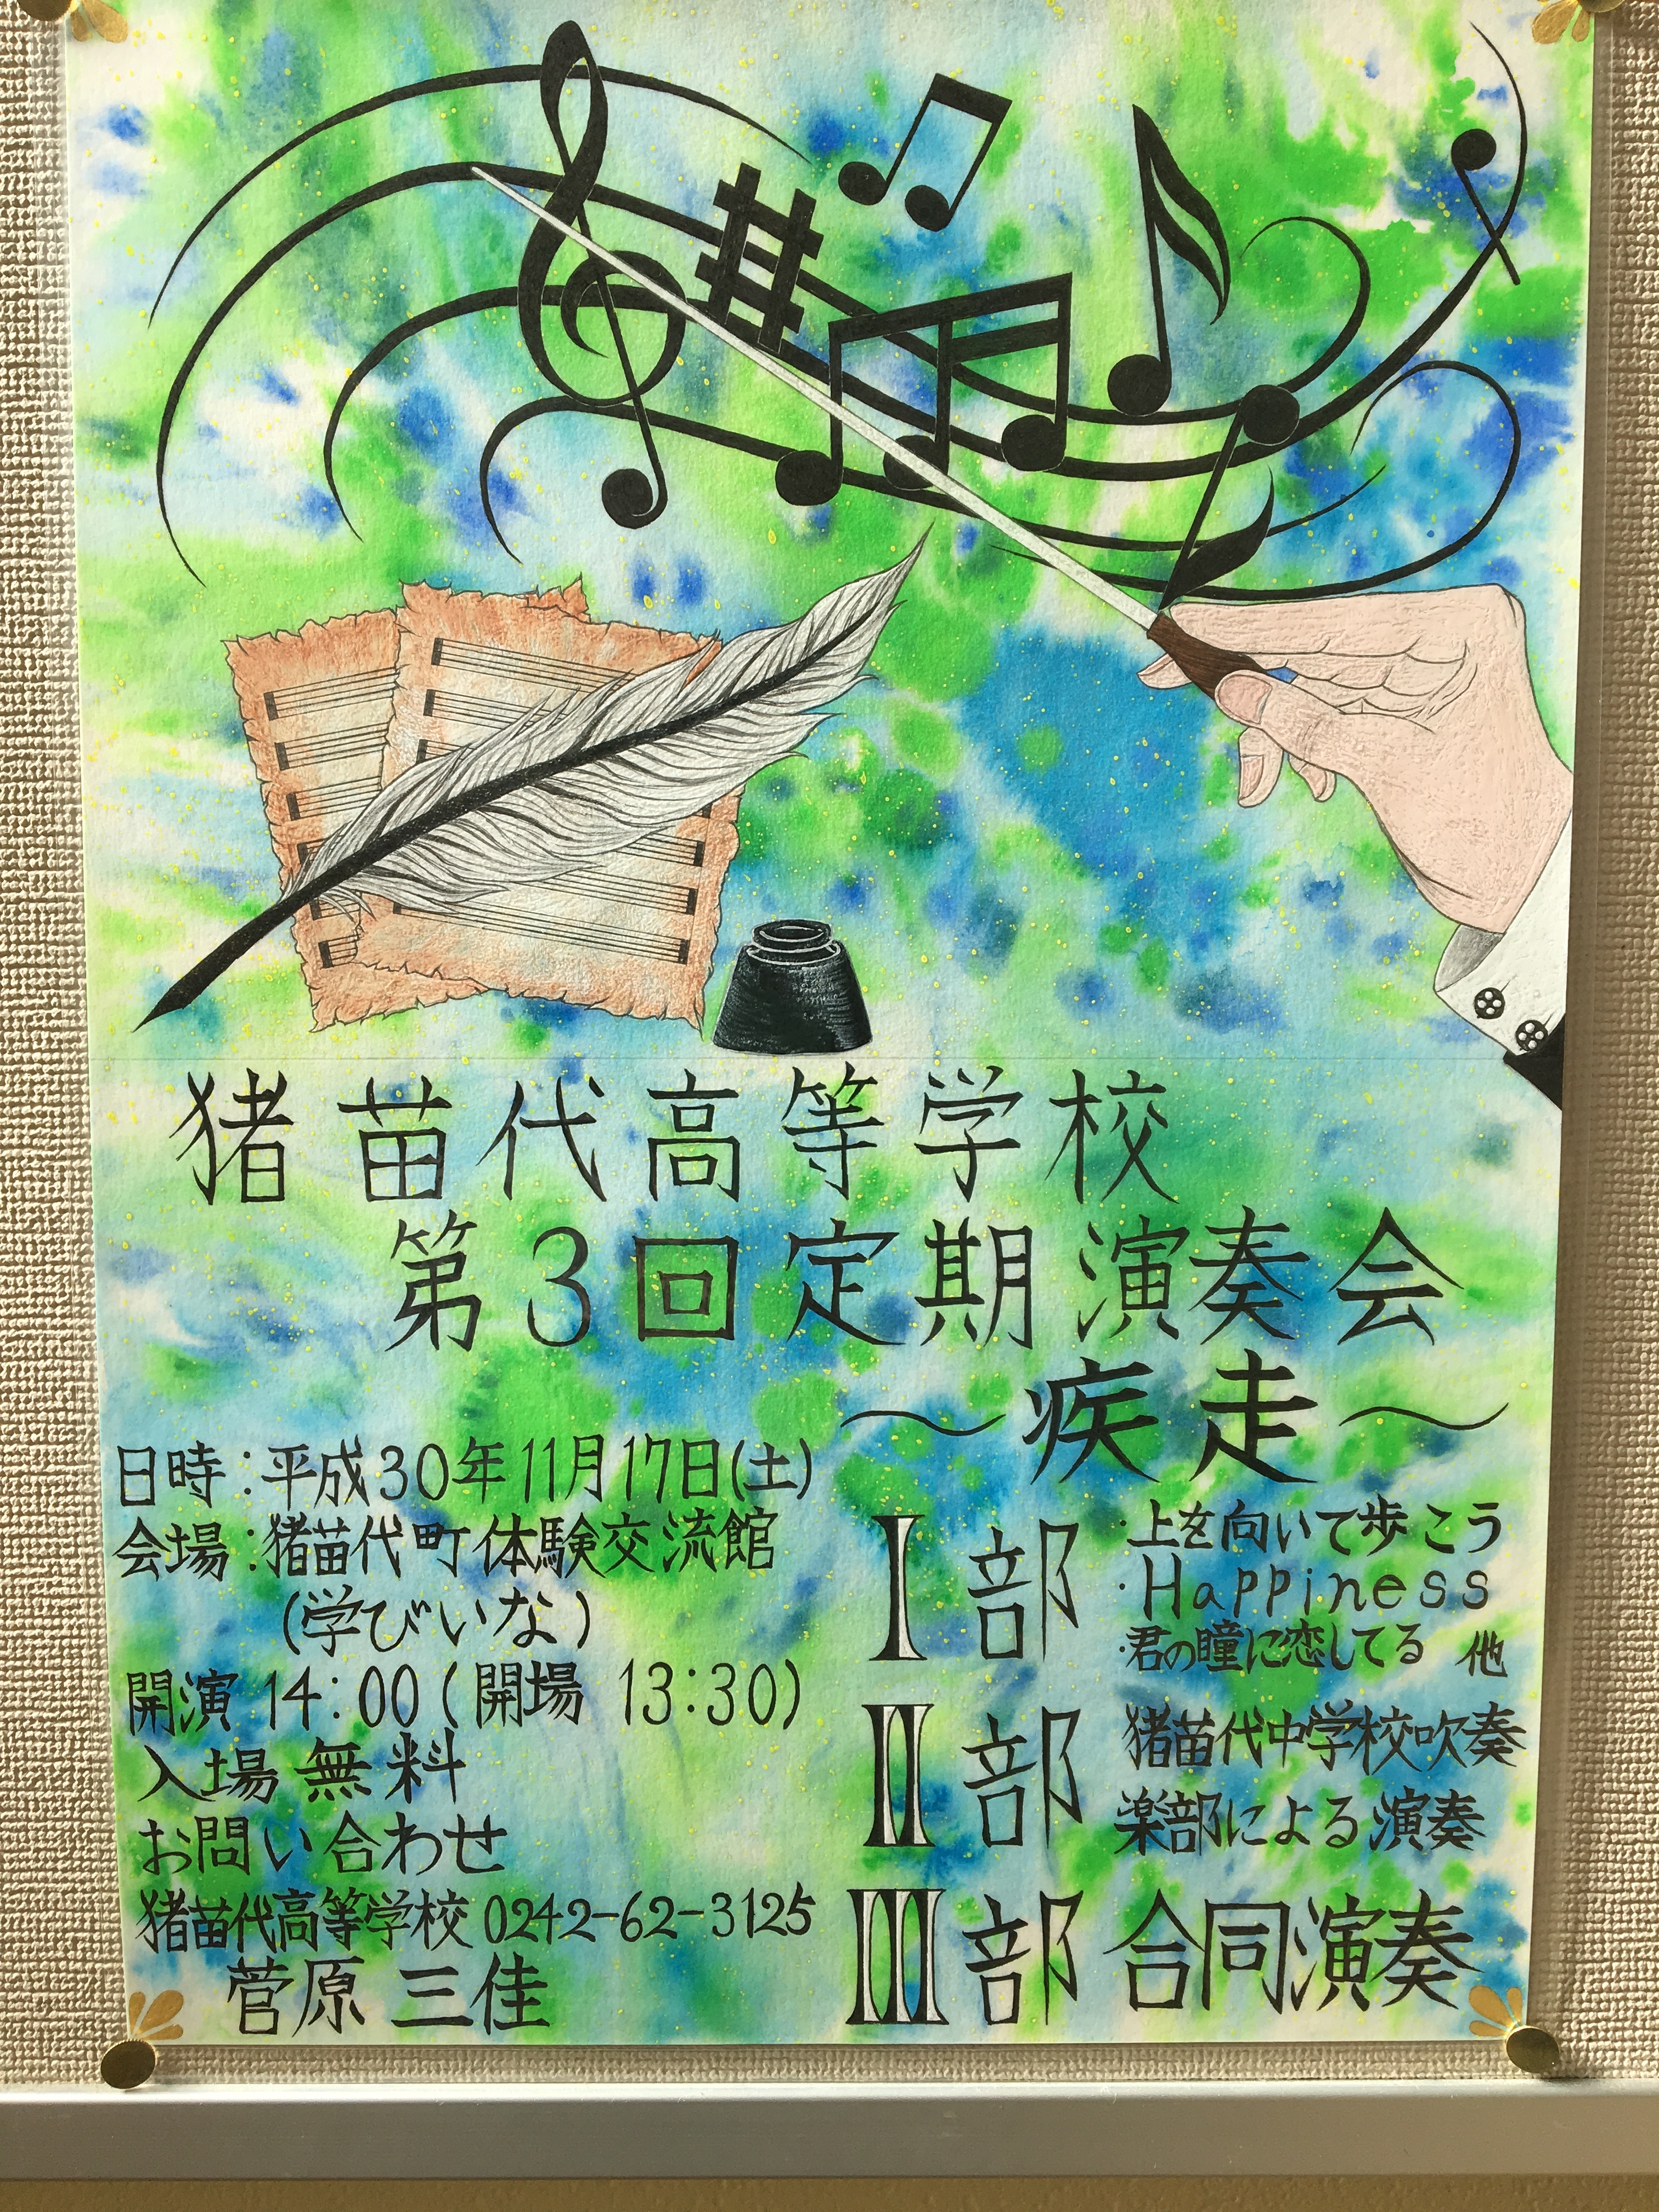 猪苗代高等学校
第3回定期演奏会
〜疾走〜
日時:平成30年11月17日(土)
会場:猪苗代町体験交流館
(学びいな)
開演 14:00(開場 13:30)
入場無料
お問い合わせ
猪苗代高等学校 0242-62-3125
菅原 三佳
I部
・上を向いて歩こう
・Happiness
・君の瞳に恋してる 他
II部
猪苗代中学校吹奏
楽部による演奏
III部 合同演奏